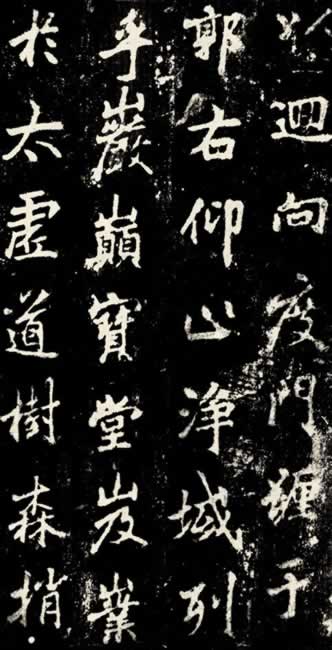 以迴向度門纏于
郭右仰止淨域列
乎巖巔寶堂岌嶪
於太虛道樹森梢